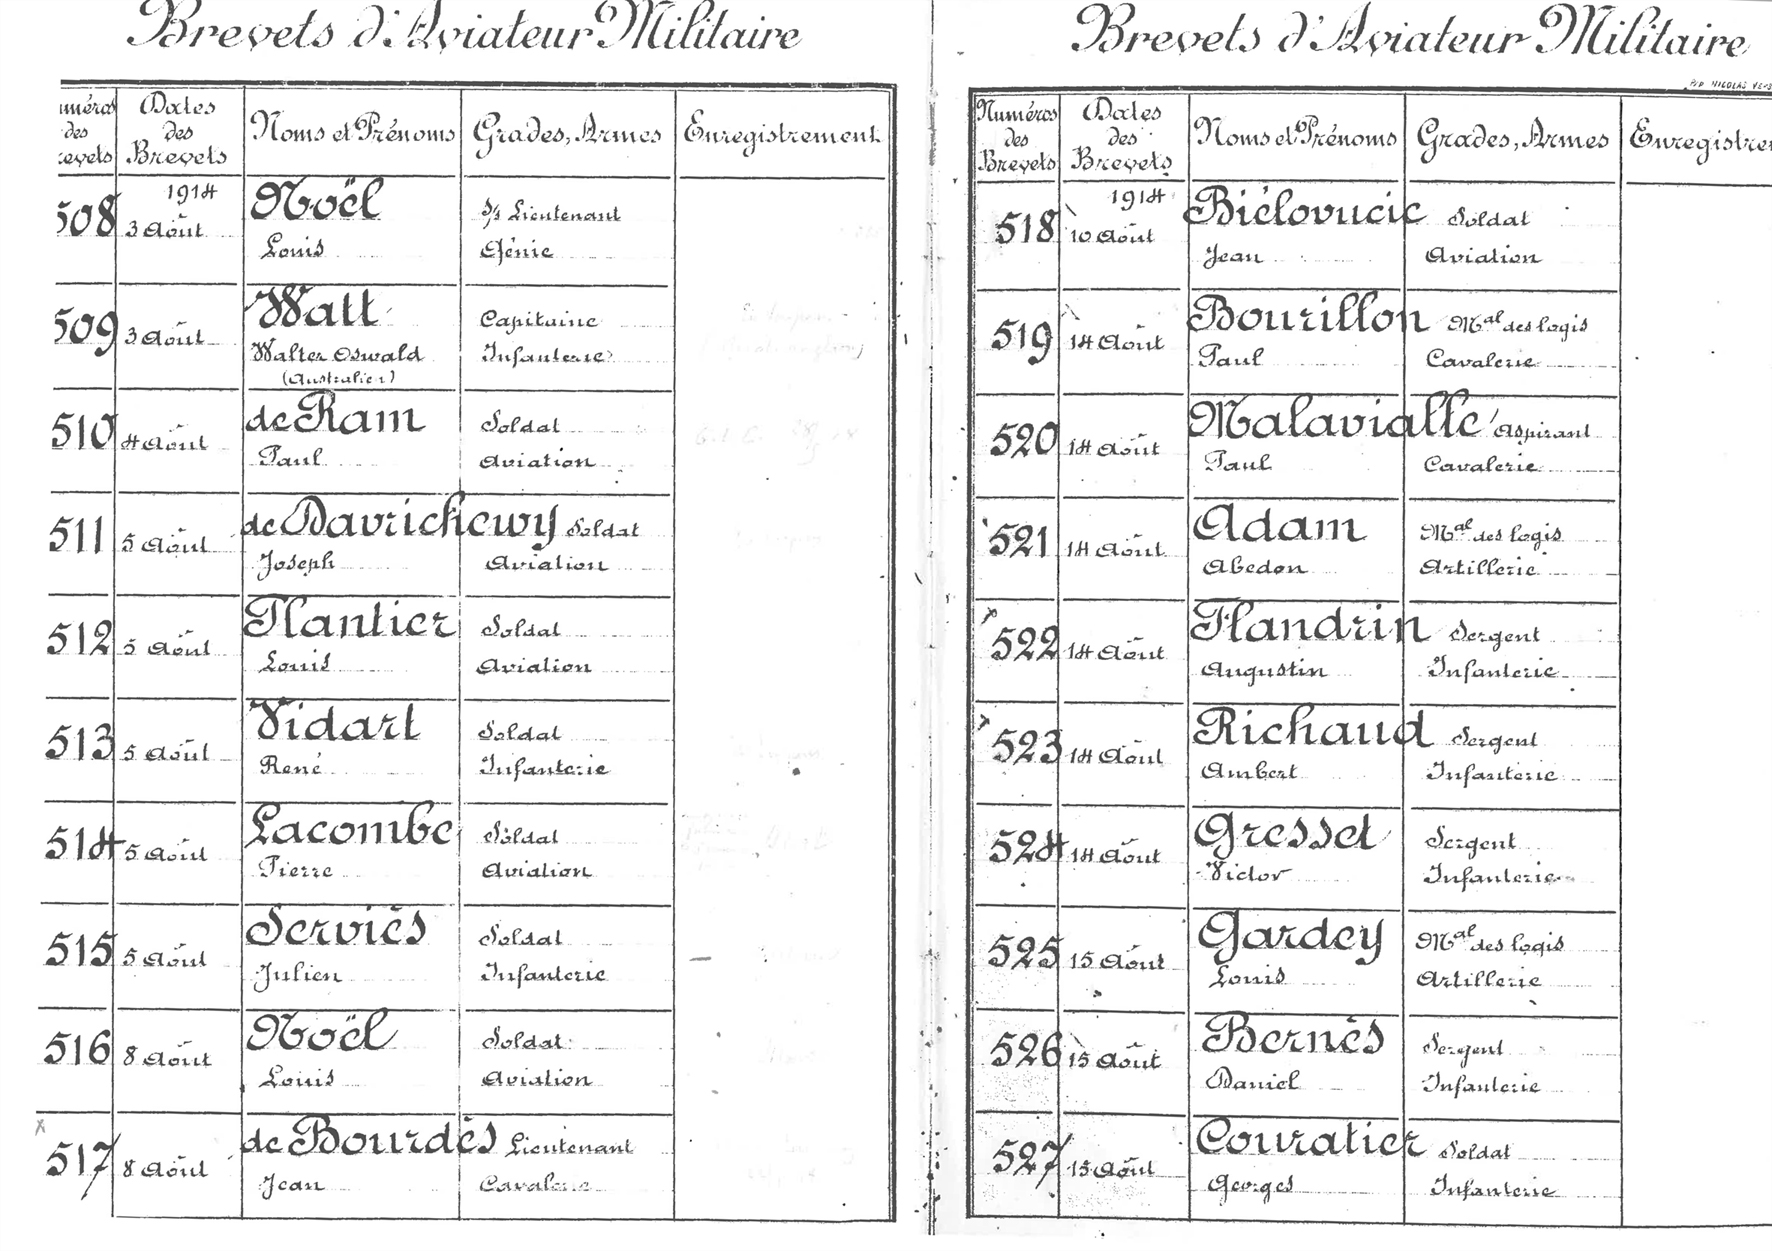 Brevets d'Aviateur Militaire
uméros des revets
Dates des Brevets
Noms et Prénoms
Grades, Armes
Enregistrement
1914
508 3 Août Noël S/s Lieutenant
Louis Génie
509 3 Août Watt Capitaine
Walter Oswald Infanterie
(Australien)
510 4 Août de Ram Soldat
Paul Aviation
511 5 Août de Davrichewy Soldat
Joseph Aviation
512 5 Août Plantier Soldat
Louis Aviation
513 5 Août Vidart Soldat
René Infanterie
514 5 Août Lacombe Soldat
Pierre Aviation
515 5 Août Serviès Soldat
Julien Infanterie
516 8 Août Noël Soldat
Louis Aviation
517 8 Août de Bourdès Lieutenant
Jean Cavalerie
Brevets d'Aviateur Militaire
Numéros des Brevets
Dates des Brevets
Noms et Prénoms
Grades, Armes
Enregistre
1914
518 10 Août Biélovucic Soldat
Jean Aviation
519 14 Août Bourillon Mal des logis
Paul Cavalerie
520 14 Août Malavialle Aspirant
Paul Cavalerie
521 14 Août Adam Mal des logis
Abedon Artillerie
522 14 Août Flandrin Sergent
Augustin Infanterie
523 14 Août Richaud Sergent
Ambert Infanterie
524 14 Août Gresset Sergent
Victor Infanterie
525 15 Août Gardey Mal des logis
Louis Artillerie
526 15 Août Bernès Sergent
Daniel Infanterie
527 15 Août Couratier Soldat
Georges Infanterie